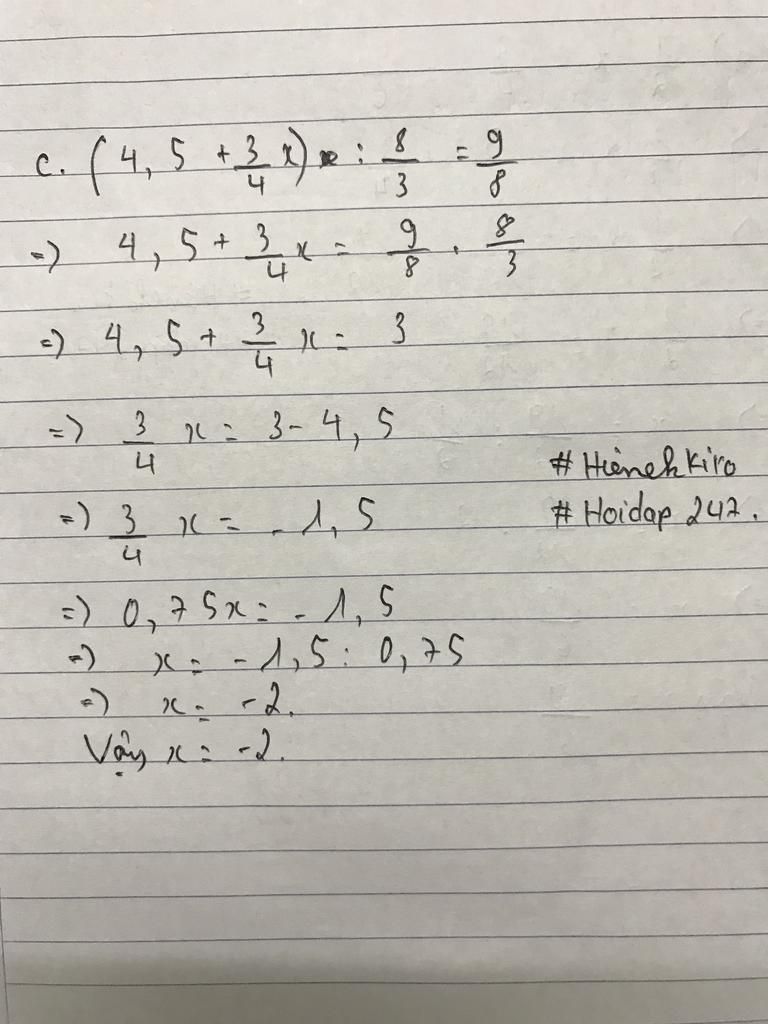 c. (4,5 + 3/4 x) : 8/3 = 9/8
=) 4,5 + 3/4 x = 9/8 . 8/3
=) 4,5 + 3/4 x = 3
=) 3/4 x = 3 - 4,5
=) 3/4 x = - 1,5
=) 0,75x = - 1,5
=) x = - 1,5 : 0,75
=) x = -2.
Vậy x = -2.
# Hoidap 247.